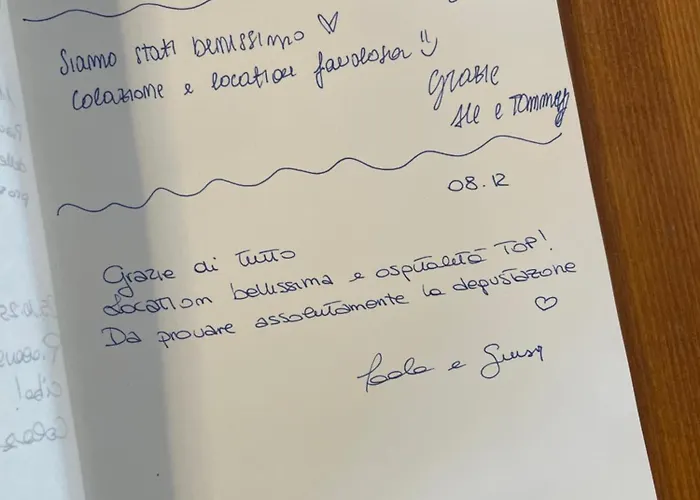 Siamo stati benissimo ♡
Colazione e location favolosa :)
Grazie
Ale e Tommy
08.12
Grazie di tutto
Location bellissima e ospitalità TOP!
Da provare assolutamente la degustazione
♡
Paola e Giusy